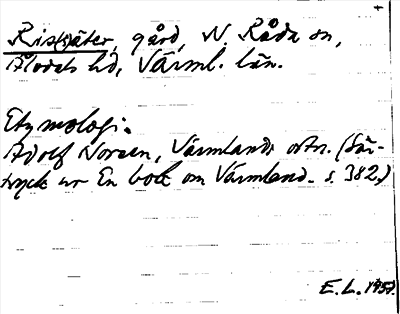 Ris(s)äter, gård, N. Råda sn,
Älvdals hd, Värml. län.
Etymologi.
Adolf Noreen, Värmlands ortn. (Sär-
tryck ur En bok om Värmland. s. 382.)
E.L. 1957.